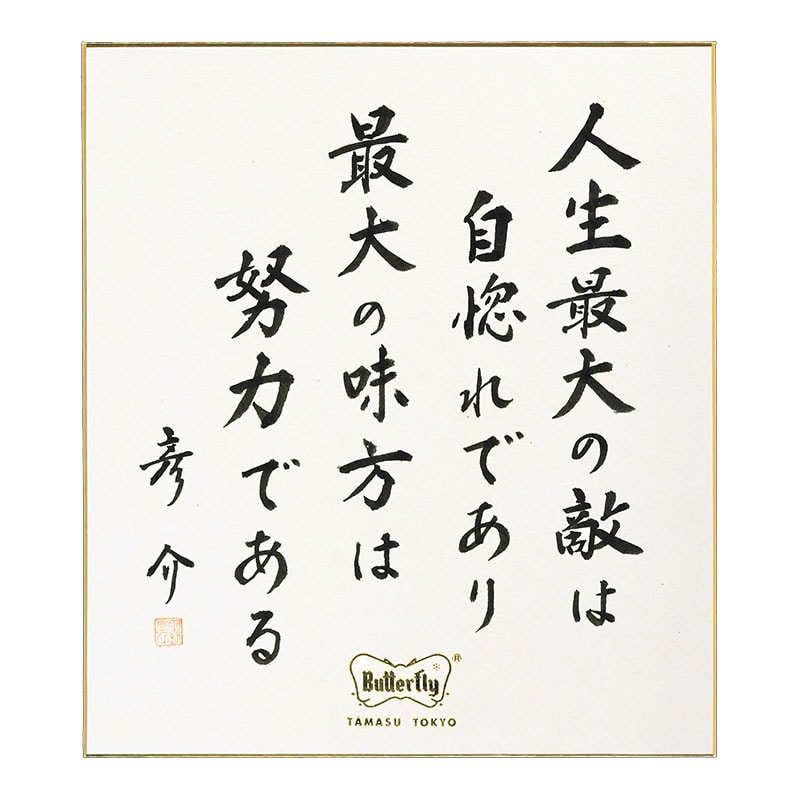 人生最大の敵は
自惚れであり
最大の味方は
努力である
彦介
Butterfly®
TAMASU TOKYO